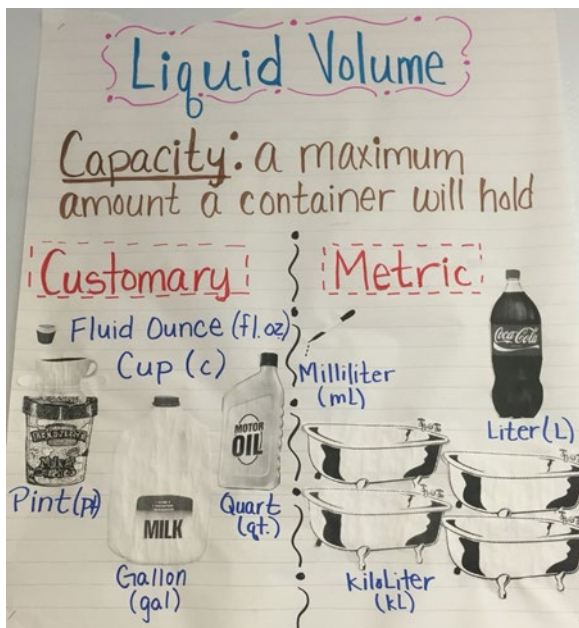 Liquid Volume
Capacity: a maximum
amount a container will hold
Customary
Fluid Ounce (fl.oz)
Cup (c)
Pint (pt)
MOTOR
OIL
Quart
(qt.)
MILK
Gallon
(gal)
Metric
Milliliter
(mL)
Coca-Cola
Liter (L)
KiloLiter
(kL)